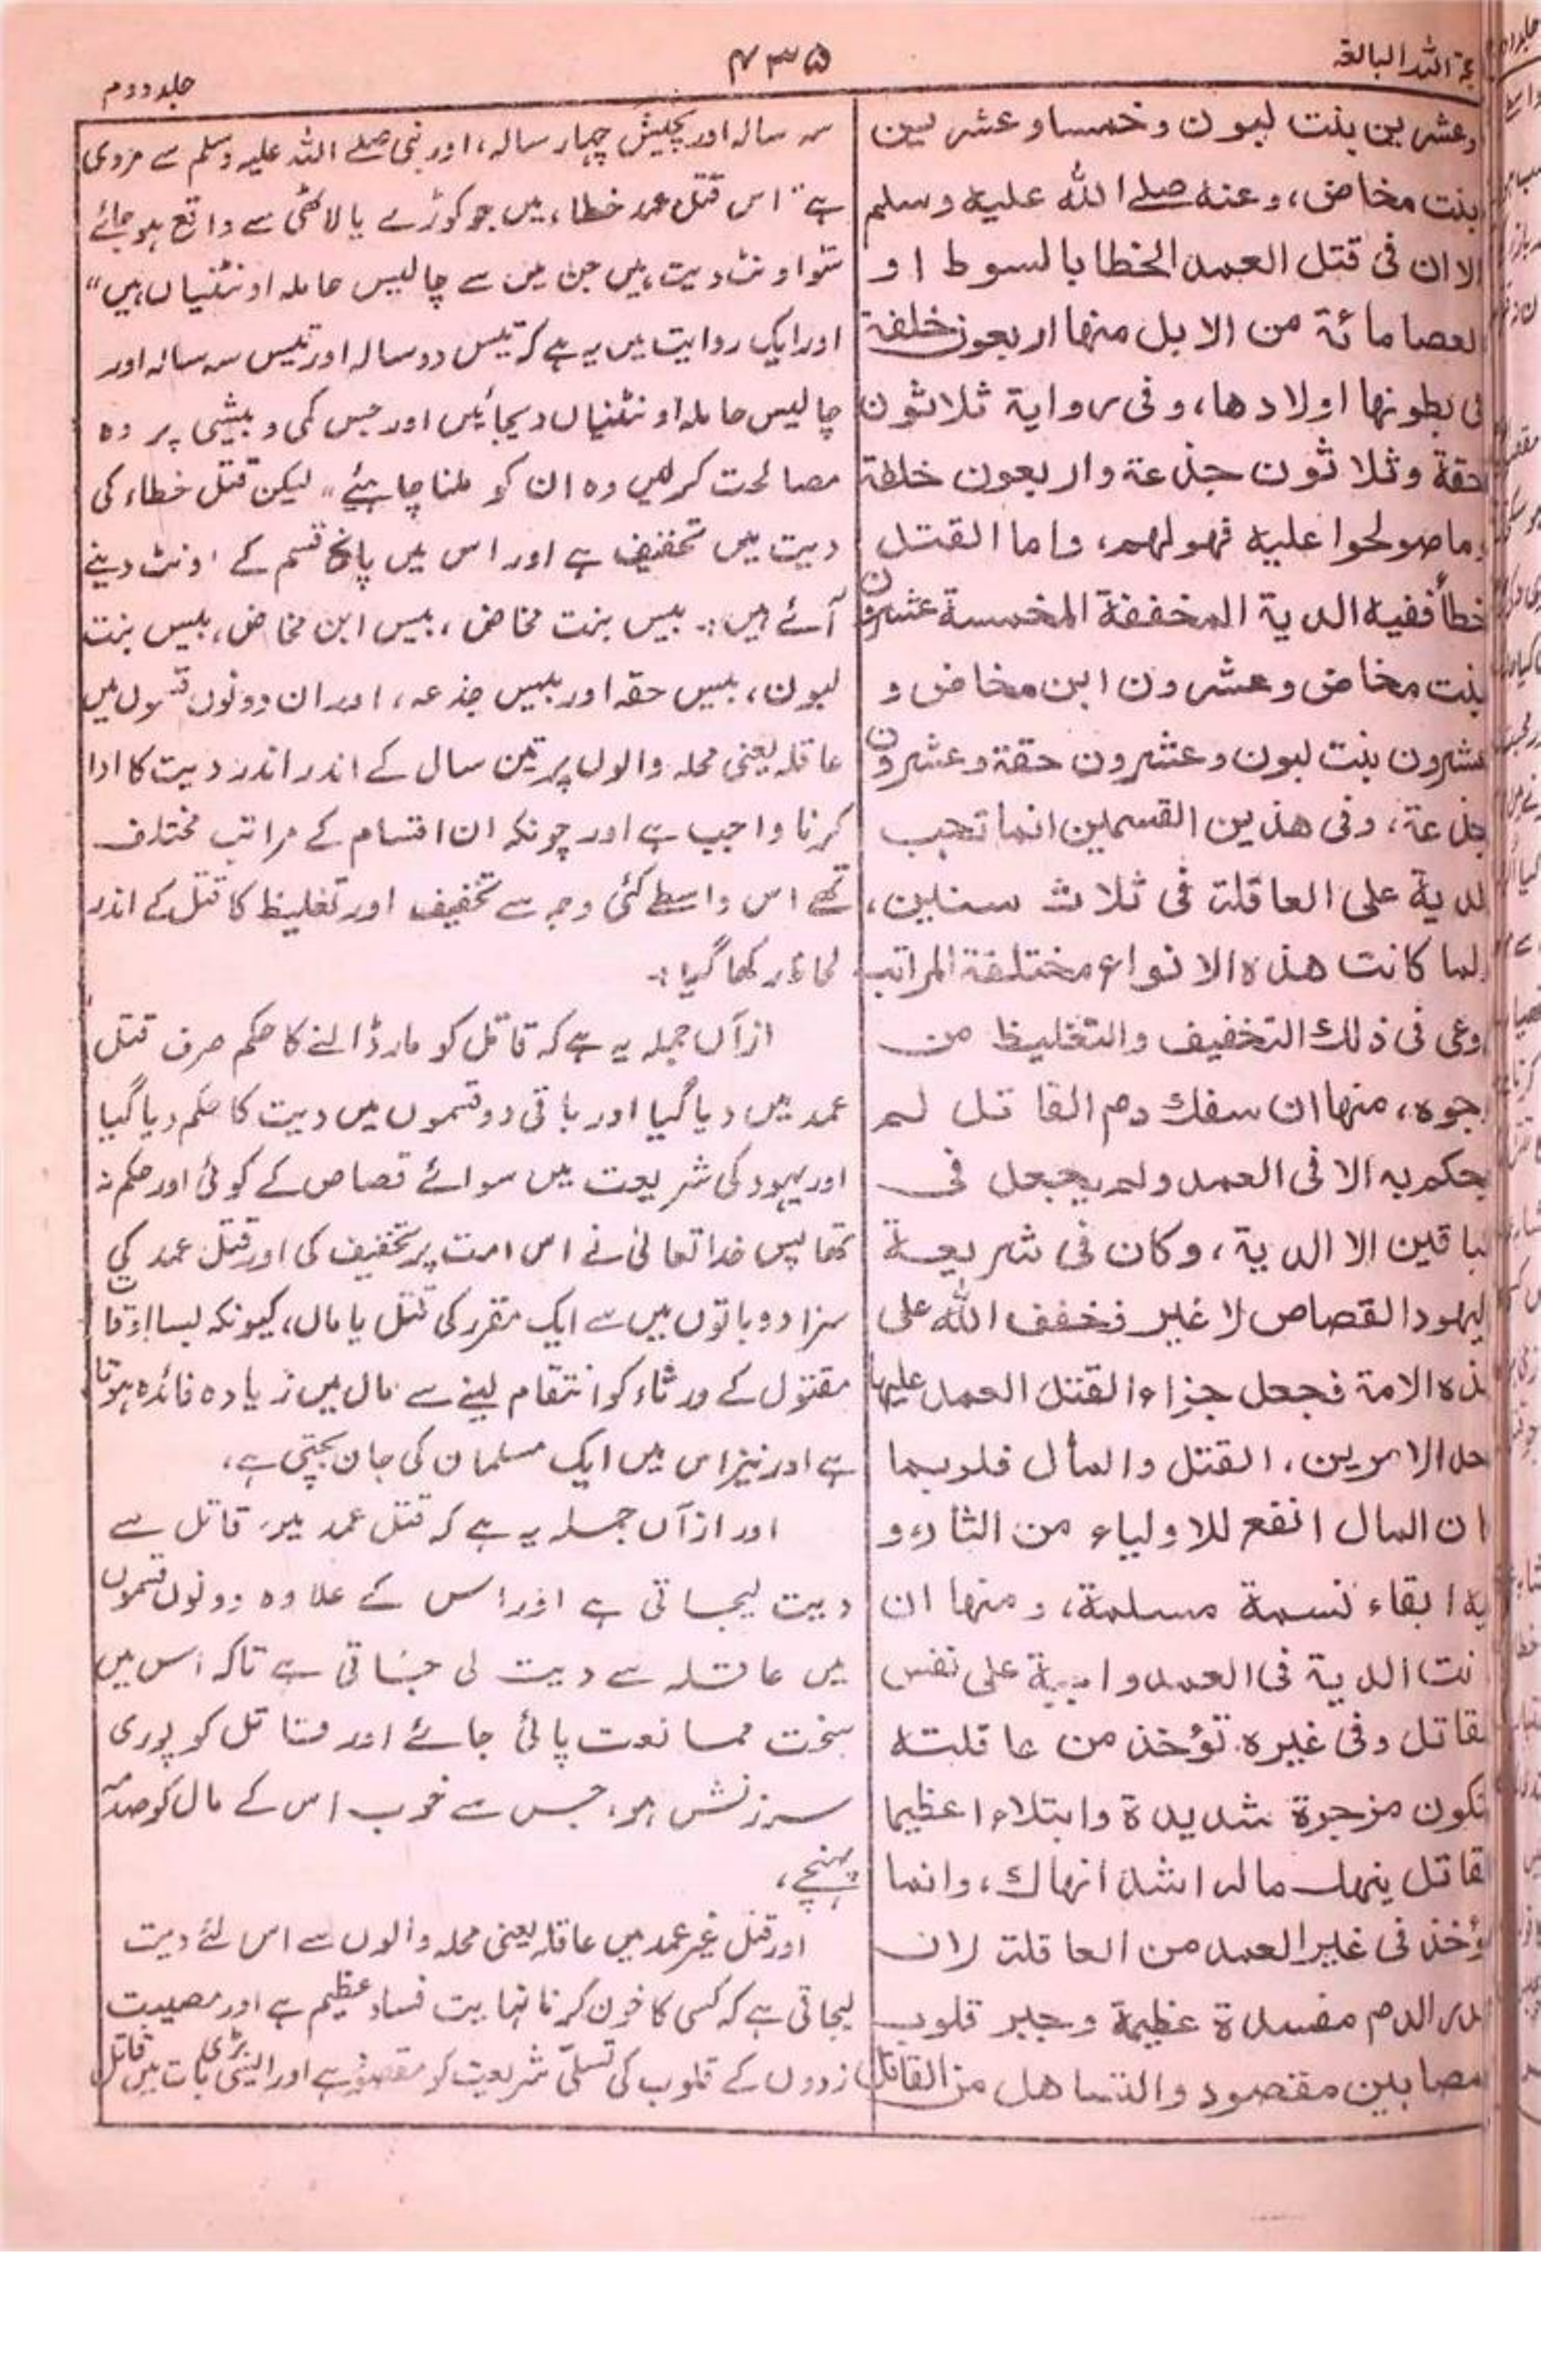 جلد دوم
۴۳۵
حجۃ اللہ البالغہ
وعشرین بنت لبون وخمسا وعشرین
بنت مخاض، وعنہ صلے اللہ علیہ وسلم
الا ان فی قتل العمد الخطا بالسوط او
العصا مائۃ من الابل منها اربعون خلفۃ
فی بطونها اولادها، وفی روایۃ ثلاثون
حقۃ وثلاثون جذعۃ واربعون خلفۃ
وما صولحوا علیه فهو لهم، واما القتل
خطأ ففیه الدیۃ المخففۃ المخمسۃ عشرون
بنت مخاض وعشرون ابن مخاض و
عشرون بنت لبون وعشرون حقۃ وعشرون
جذعۃ، وفی هذین القسمین انما تجب
لدیۃ علی العاقلۃ فی ثلاث سنین،
ولما کانت هذه الانواع مختلفۃ المراتب
روعی فی ذلك التخفیف والتغلیظ من
وجوه، منها ان سفك دم القاتل لم
یحکم به الا فی العمد ولم یجعل فی
لباقین الا الدیۃ، وکان فی شریعۃ
الیهود القصاص لا غیر فخفف اللہ علی
هذه الامۃ فجعل جزاء القتل العمد علیها
احد الامرین، القتل والمال فلربما
کان المال انفع للاولیاء من الثار، و
فیه ابقاء نسمۃ مسلمۃ، ومنها ان
کانت الدیۃ فی العمد واجبۃ علی نفس
لقاتل وفی غیره تؤخذ من عاقلته
لتکون مزجرۃ شدیدۃ وابتلاء اعظیما
لقاتل ینهك ماله اشد انهاك، وانما
تؤخذ فی غیر العمد من العاقلۃ لان
هدر الدم مفسدۃ عظیمۃ وجبر قلوب
لمصابین مقصود والتساهل من القاتل
سہ سالہ اور پچیس چہار سالہ، اور نبی صلے اللہ علیہ وسلم سے مروی
ہے "اس قتل عمد خطاء میں جو کوڑے یا لاٹھی سے واقع ہو جائے
سَو اونٹ دیت ہیں جن میں سے چالیس حاملہ اونٹنیاں ہیں"
اور ایک روایت میں یہ ہے کہ تیس دو سالہ اور تیس سہ سالہ اور
چالیس حاملہ اونٹنیاں دیجائیں اور جس کمی و بیشی پر وہ
مصالحت کر لیں وہ ان کو ملنا چاہئے" لیکن قتل خطاء کی
دیت میں تخفیف ہے اور اس میں پانچ قسم کے اونٹ دینے
آئے ہیں:۔ بیس بنت مخاض، بیس ابن مخاض، بیس بنت
لبون، بیس حقہ اور بیس جذعہ، اور ان دونوں قسموں میں
عاقلہ یعنی محلہ والوں پر تین سال کے اندر اندر دیت کا ادا
کرنا واجب ہے اور چونکہ ان اقسام کے مراتب مختلف
تھے اس واسطے کئی وجہ سے تخفیف اور تغلیظ کا قتل کے اندر
لحاظ رکھا گیا:۔
ازآں جملہ یہ ہے کہ قاتل کو مار ڈالنے کا حکم صرف قتل
عمد میں دیا گیا اور باقی دو قسموں میں دیت کا حکم دیا گیا
اور یہود کی شریعت میں سوائے قصاص کے کوئی اور حکم نہ
تھا پس خدا تعالیٰ نے اس امت پر تخفیف کی اور قتل عمد کی
سزا دو باتوں میں سے ایک مقرر کی قتل یا مال، کیونکہ بسا اوقات
مقتول کے ورثاء کو انتقام لینے سے مال میں زیادہ فائدہ ہوتا
ہے اور نیز اس میں ایک مسلمان کی جان بچتی ہے،
اور ازآں جملہ یہ ہے کہ قتل عمد میں قاتل سے
دیت لیجاتی ہے اور اس کے علاوہ دونوں قسموں
میں عاقلہ سے دیت لی جاتی ہے تاکہ اس میں
سخت ممانعت پائی جائے اور قاتل کو پوری
سرزنش ہو، جس سے خوب اس کے مال کو صدمہ
پہنچے،
اور قتل غیر عمد میں عاقلہ یعنی محلہ والوں سے اس لئے دیت
لیجاتی ہے کہ کسی کا خون کرنا نہایت فساد عظیم ہے اور مصیبت
زدوں کے قلوب کی تسلّی شریعت کو مقصود ہے اور ایسی بڑی بات میں قاتل